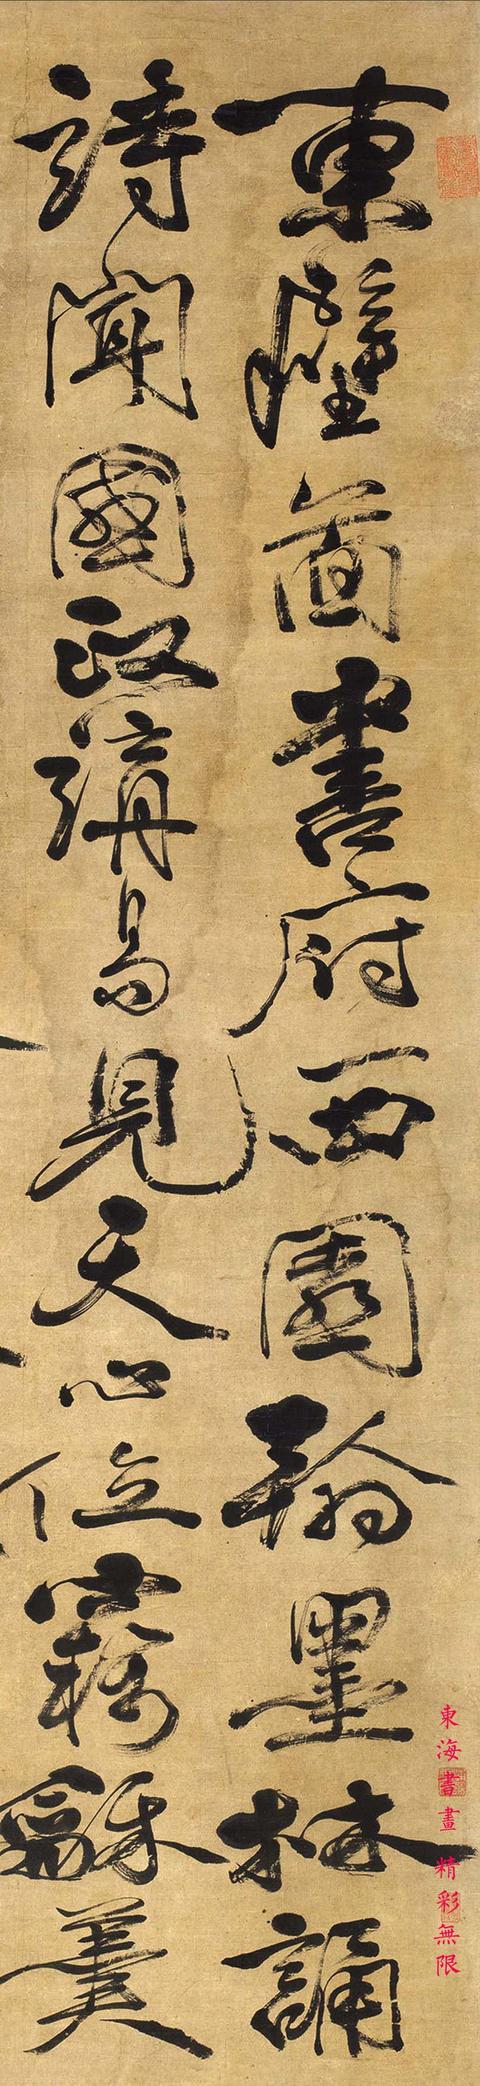 東壁圖書府西園翰墨林誦
詩聞國政講易見天心位竊龢羹
東海書畫 精彩無限